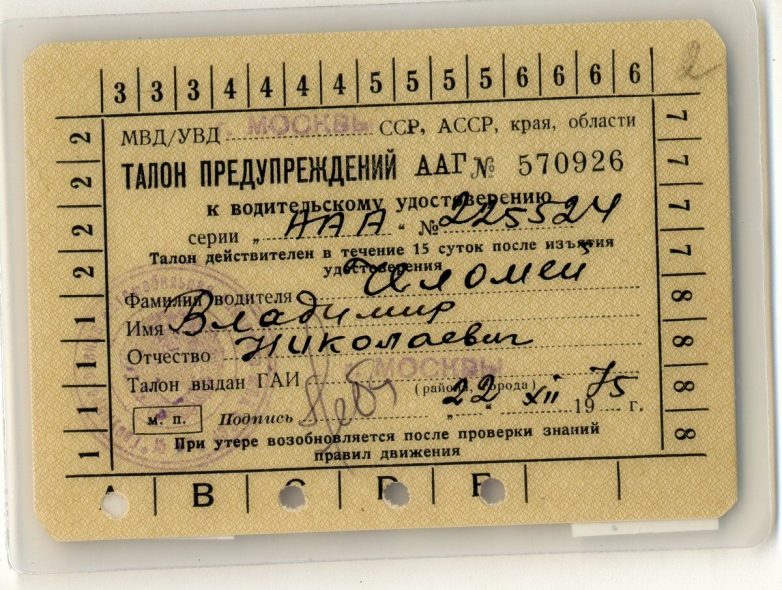 2
3 3 3 4 4 4 4 5 5 5 5 6 6 6 6
МВД/УВД МОСКВЫ ССР, АССР, края, области
ТАЛОН ПРЕДУПРЕЖДЕНИЙ ААГ № 570926
к водительскому удостоверению
серии „ААА“ № 225524
Талон действителен в течение 15 суток после изъятия
удостоверения
Фамилия водителя Челомей
Имя Владимир
Отчество Николаевич
Талон выдан ГАИ МОСКВЫ
(района, города)
„22“ XII 1975 г.
м. п. Подпись
При утере возобновляется после проверки знаний
правил движения
2 2 2 2 1 1 1 1
7 7 7 7 8 8 8 8
A B C D E